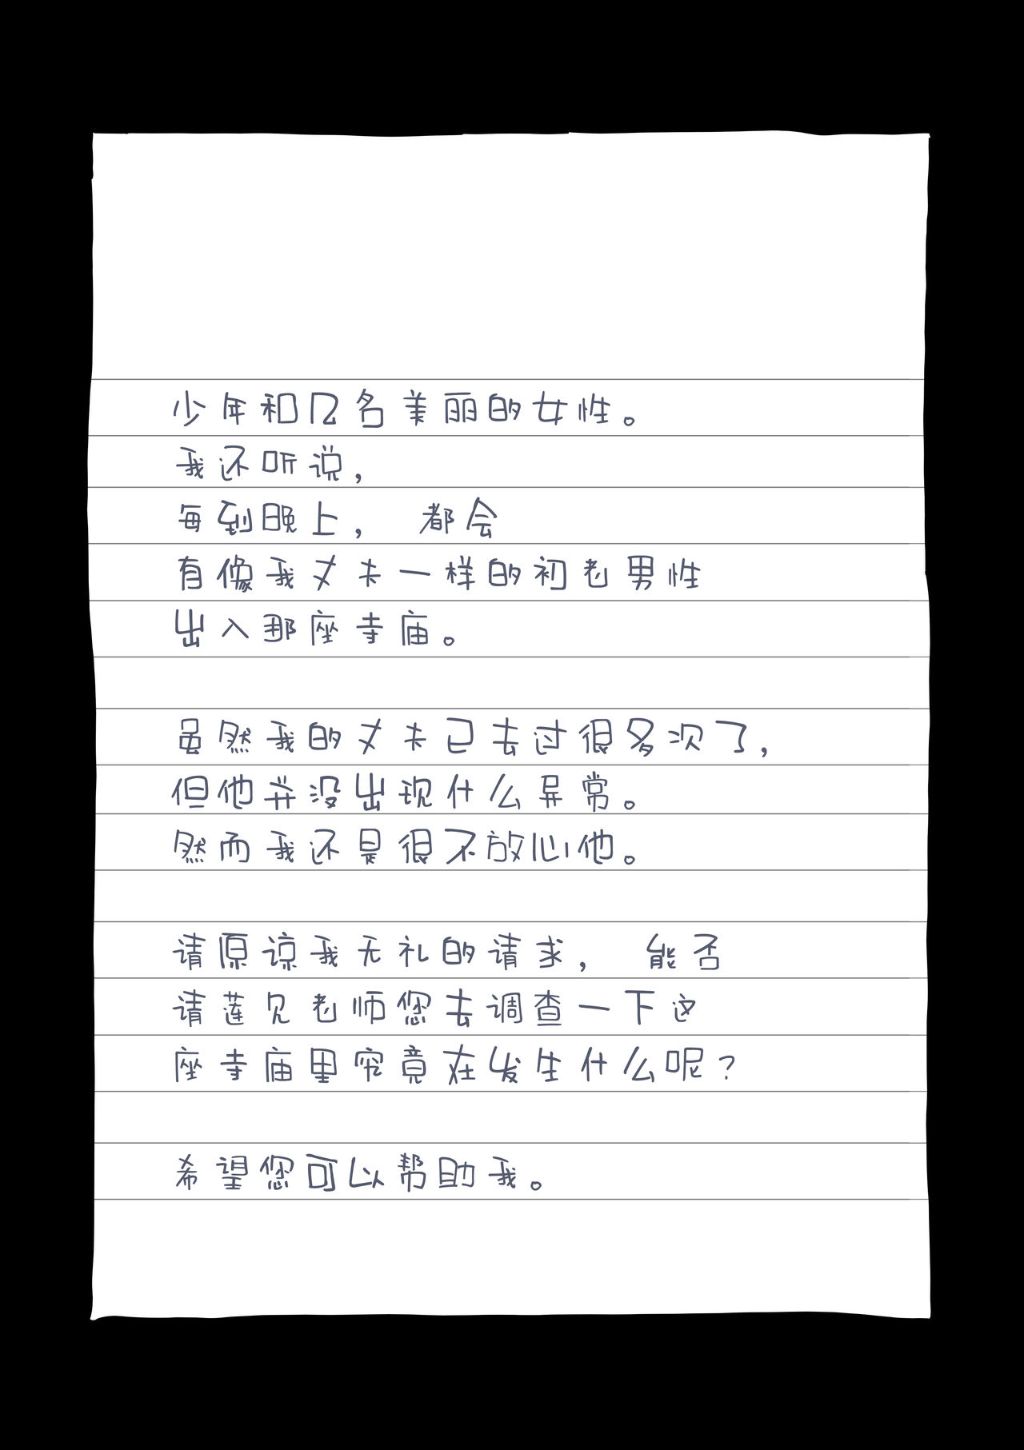 少年和几名美丽的女性。
我还听说，
每到晚上， 都会
有像我丈夫一样的初老男性
出入那座寺庙。
虽然我的丈夫已去过很多次了，
但他并没出现什么异常。
然而我还是很不放心他。
请原谅我无礼的请求， 能否
请莲见老师您去调查一下这
座寺庙里究竟在发生什么呢？
希望您可以帮助我。